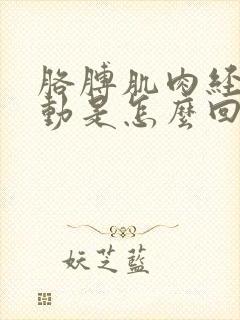 胳膊肌肉经
动是怎麼回
妖芝蓝